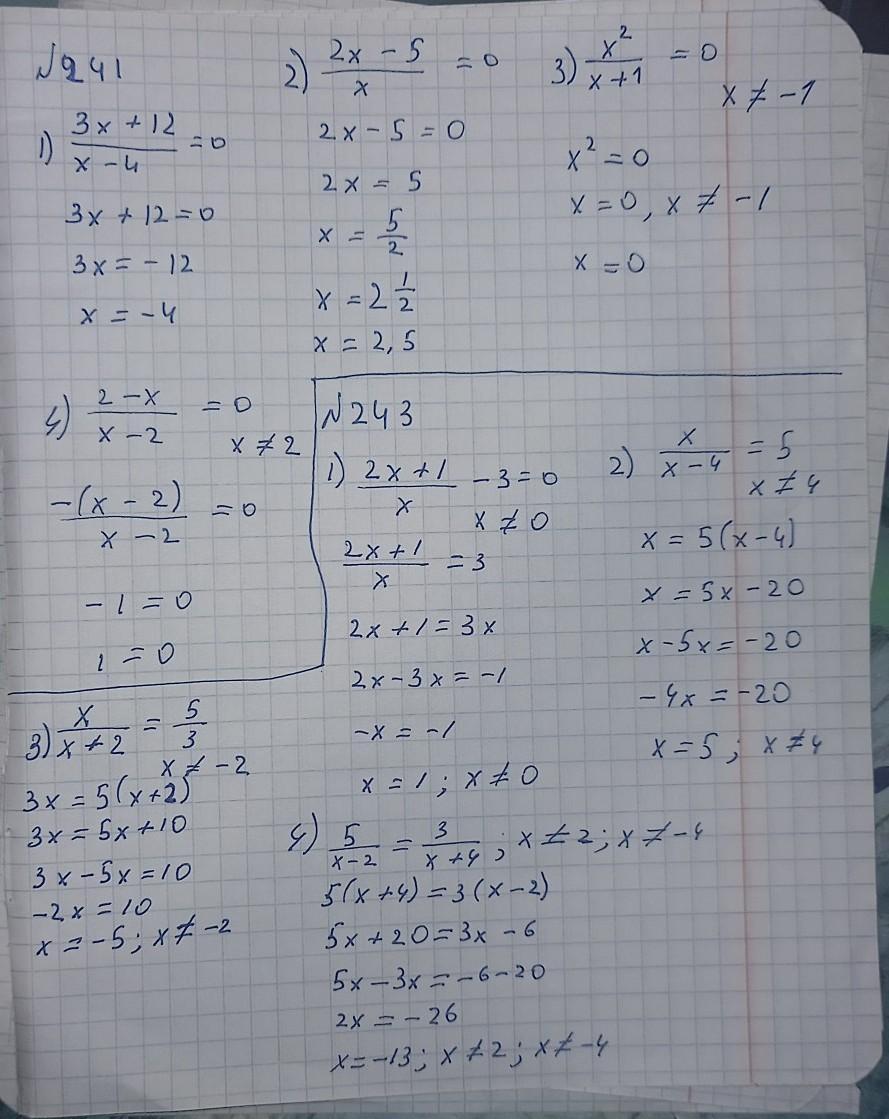 №241
1) (3x + 12)/(x - 4) = 0
3x + 12 = 0
3x = -12
x = -4
2) (2x - 5)/x = 0
2x - 5 = 0
2x = 5
x = 5/2
x = 2 1/2
x = 2,5
3) x²/(x + 1) = 0
x ≠ -1
x² = 0
x = 0, x ≠ -1
x = 0
4) (2 - x)/(x - 2) = 0
x ≠ 2
-(x - 2)/(x - 2) = 0
-1 = 0
1 = 0
№243
1) (2x + 1)/x - 3 = 0
x ≠ 0
(2x + 1)/x = 3
2x + 1 = 3x
2x - 3x = -1
-x = -1
x = 1; x ≠ 0
2) x/(x - 4) = 5
x ≠ 4
x = 5(x - 4)
x = 5x - 20
x - 5x = -20
-4x = -20
x = 5; x ≠ 4
3) x/(x + 2) = 5/3
x ≠ -2
3x = 5(x + 2)
3x = 5x + 10
3x - 5x = 10
-2x = 10
x = -5; x ≠ -2
4) 5/(x - 2) = 3/(x + 4); x ≠ 2; x ≠ -4
5(x + 4) = 3(x - 2)
5x + 20 = 3x - 6
5x - 3x = -6 - 20
2x = -26
x = -13; x ≠ 2; x ≠ -4